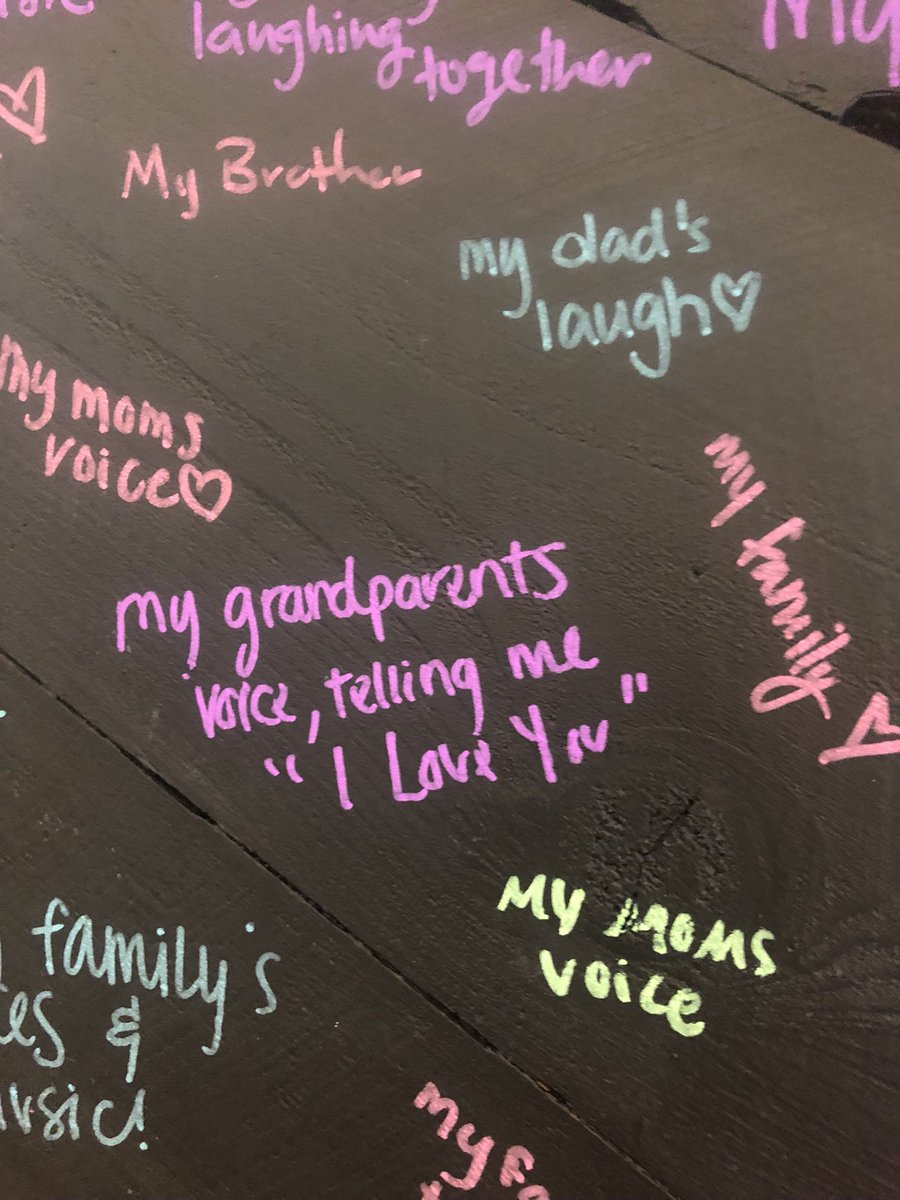 laughing
together
My
My Brother
my dad's
laugh♡
my moms
voice♡
my family
my grandparents
voice, telling me
"I Love You"
MY MOMS
voice
family's
&
my